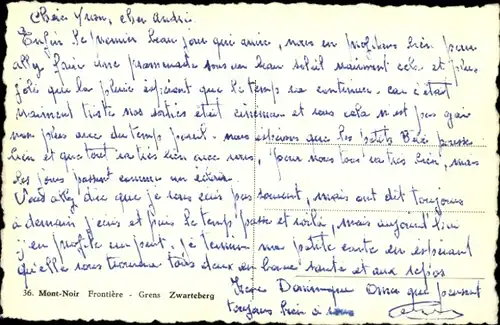 Chère Yvon, cher André
Enfin le premier beau jour qui arrive, nous en profitons bien pour
faire une promenade sous un beau soleil vraiment cela est plus
joli que la pluie espérant que le temps va continuer. car c'était
vraiment triste nos sorties était cinéma et sous cela n'est pas gai
non plus avec du temps pareil. nous espérons que les petits
bien et que tout va très bien avec vous, pour nous tous va très bien, mais
les jours passent comme un éclair.
Vous allez dire que je vous écris pas souvent, mais on dit toujours
à demain j'écris et puis le temps passe et voilà, mais aujourd'hui
j'en profite un peu. je termine ma petite carte en espérant
qu'elle vous trouvera tous deux en bonne santé et aux
Dominique qui pensent
toujours bien à vous
36. Mont-Noir Frontière - Grens Zwarteberg